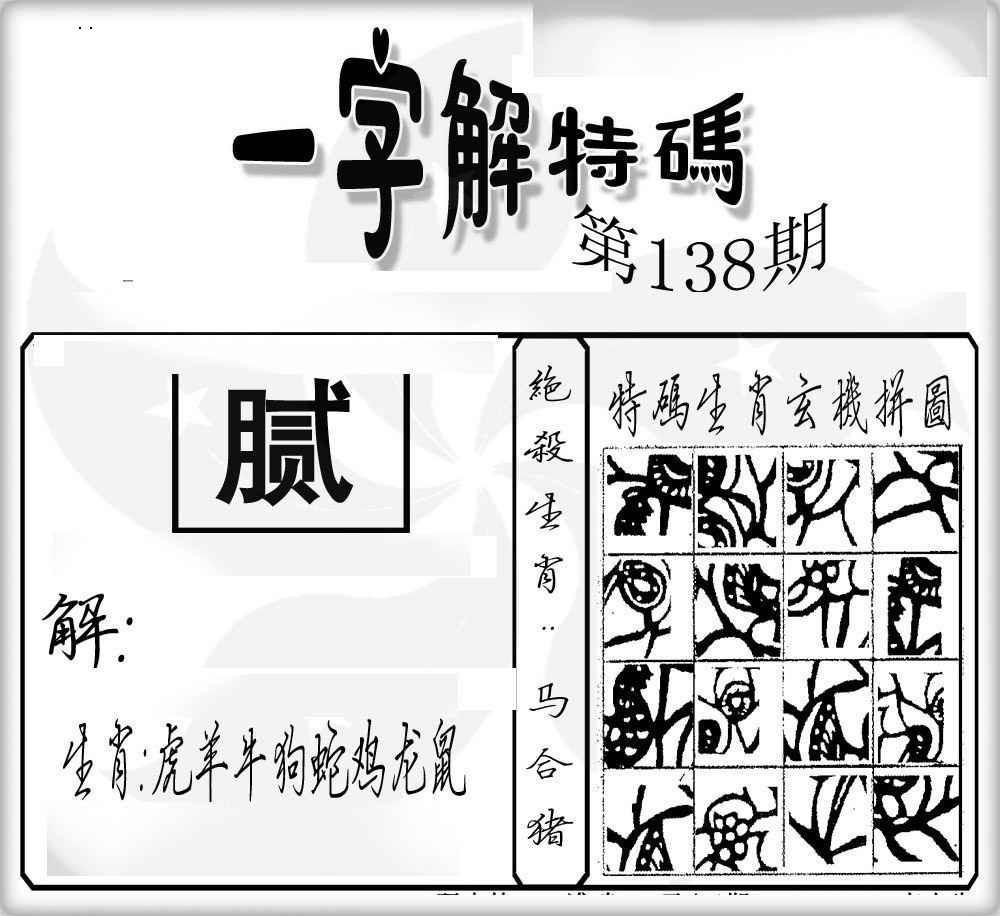 一字解特碼
第138期
膩
解:
生肖:虎羊牛狗蛇鸡龙鼠
絶殺生肖:马合猪
特碼生肖玄機拼圖